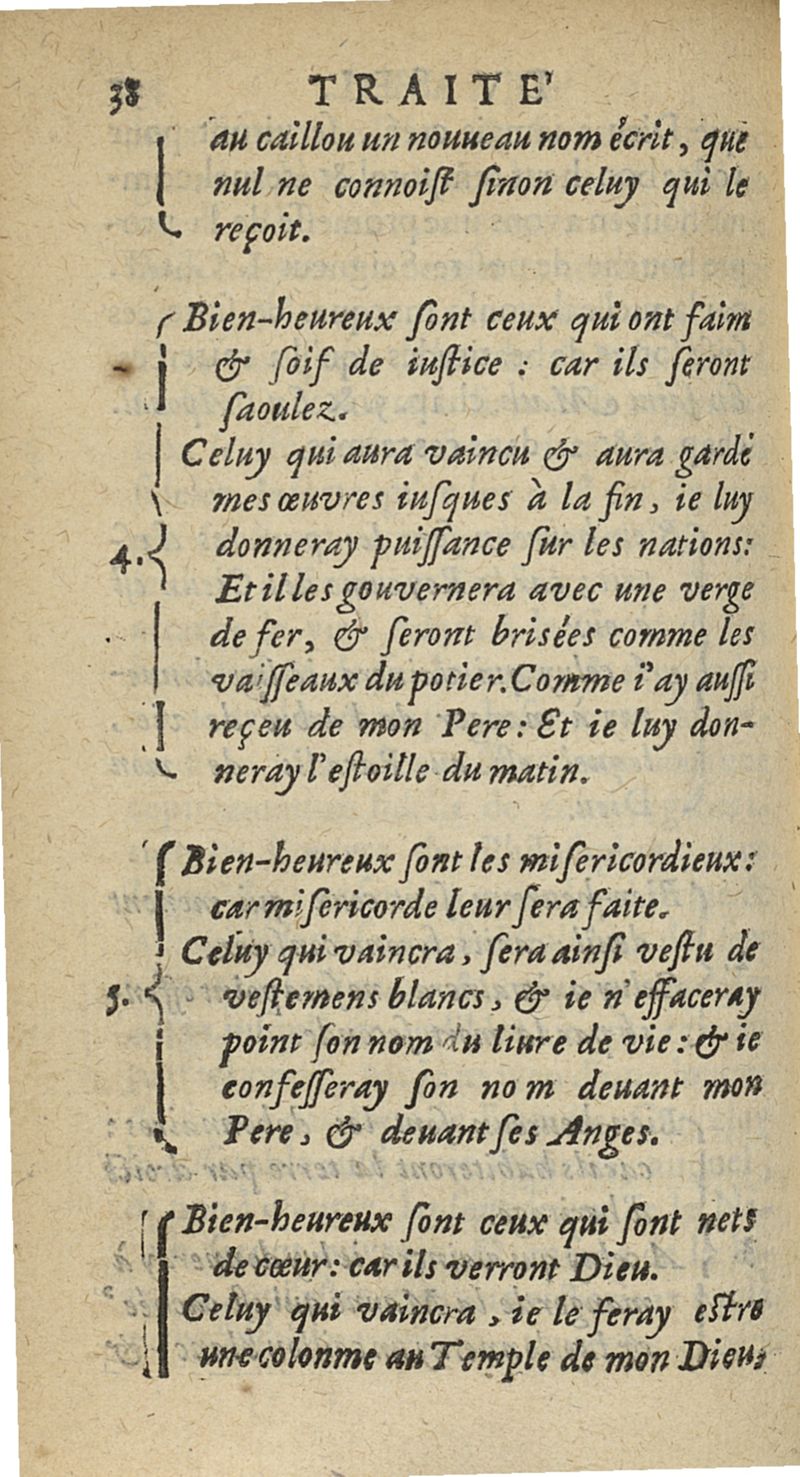 38 TRAITE'
au caillou un nouueau nom écrit, que
nul ne connoiſt ſinon celuy qui le
reçoit.
Bien-heureux ſont ceux qui ont faim
& ſoif de iuſtice : car ils ſeront
ſaoulez.
Celuy qui aura vaincu & aura gardé
mes œuvres iuſques à la fin, ie luy
4. donneray puiſſance ſur les nations:
Et il les gouvernera avec une verge
de fer, & ſeront brisées comme les
vaiſſeaux du potier. Comme i'ay auſſi
reçeu de mon Pere: Et ie luy don-
neray l'eſtoille du matin.
Bien-heureux ſont les miſericordieux:
car miſericorde leur ſera faite.
Celuy qui vaincra, ſera ainſi veſtu de
5. veſtemens blancs, & ie n'effaceray
point ſon nom du liure de vie: & ie
confeſſeray ſon nom deuant mon
Pere, & deuant ſes Anges.
Bien-heureux ſont ceux qui ſont nets
de cœur: car ils verront Dieu.
Celuy qui vaincra, ie le feray eſtre
une colonme au Temple de mon Dieu,